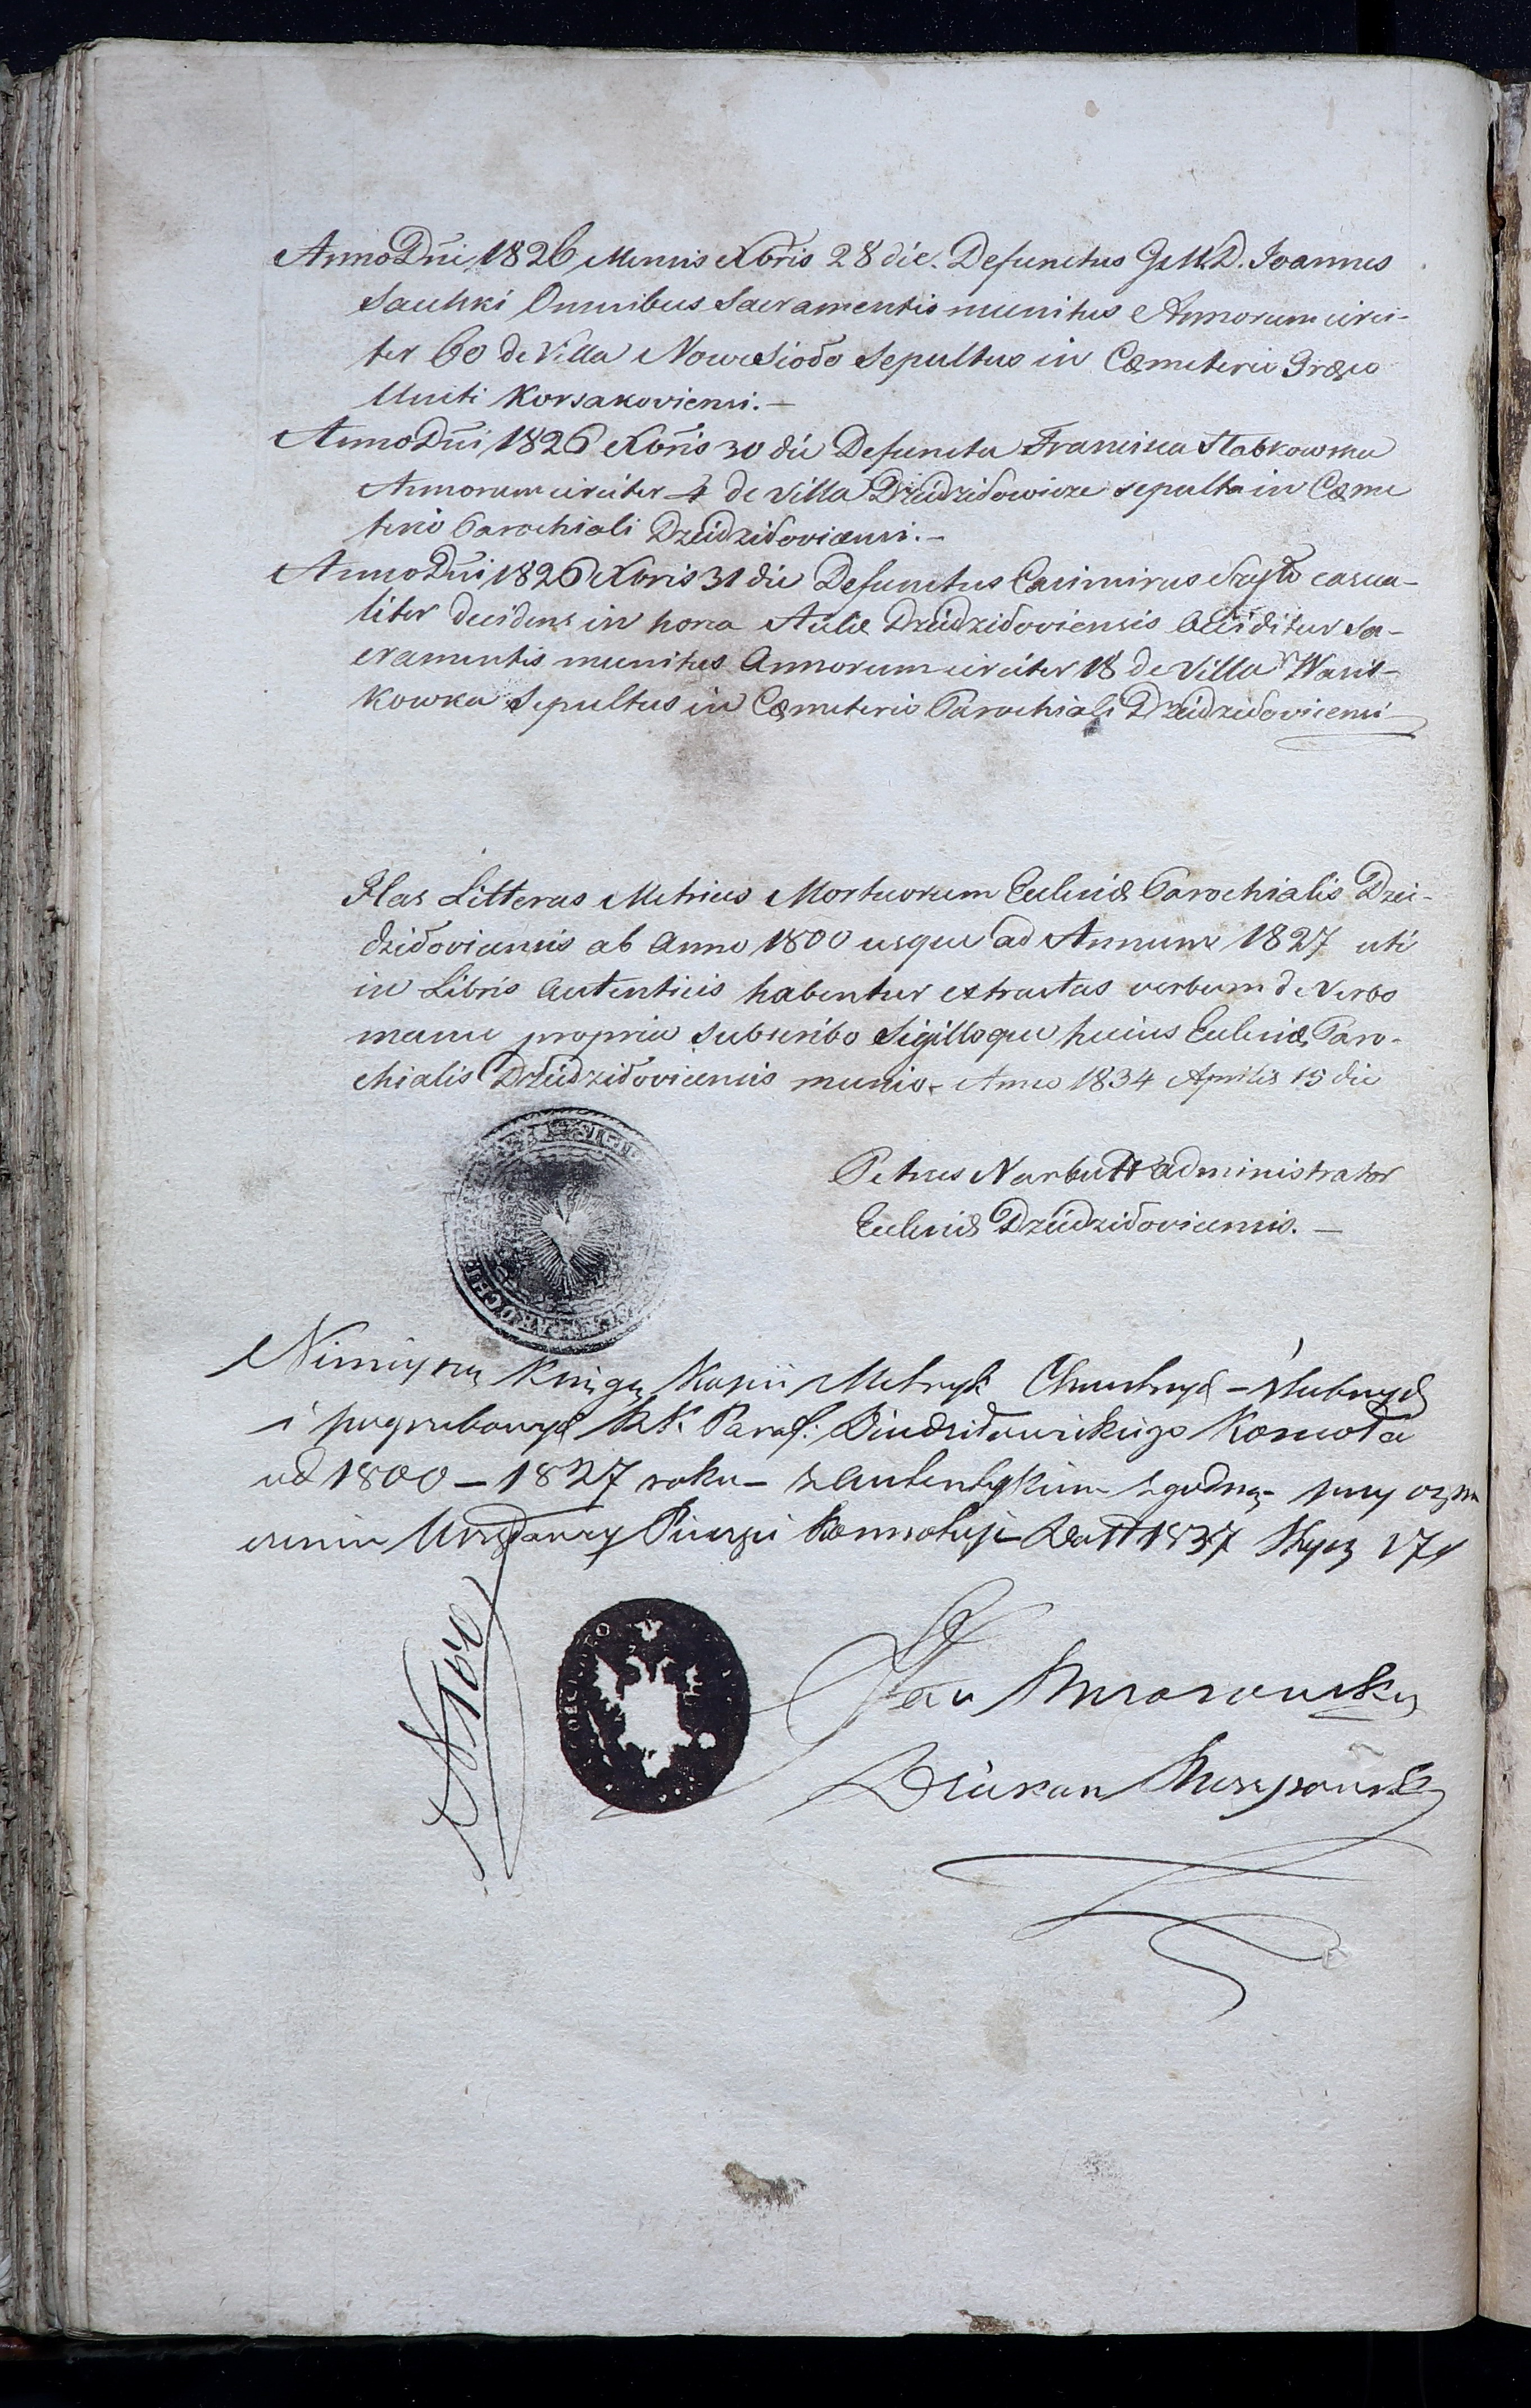 Anno Dni 1826 Mensis Xbris 28 die. Defunctus G. M. D. Joannes
Sauhki Omnibus Sacramentis munitus Annorum circi-
ter 60 de Villa Nowesioło Sepultus in Cæmeterio Græco
Uniti Korsakoviensi.—
Anno Dni 1826 Xbris 30 die Defuncta Francisca Stabkowska
Annorum circiter 4 de Villa Dziedziłowicze sepulta in Cæme
terio Parochiali Dziedziłoviciensi.—
Anno Dni 1826 Xbris 31 die Defunctus Casimirus Szyło casua-
liter decidens in horea Aulæ Dziedziłoviensis occiditur Sa-
cramentis munitus Annorum circiter 18 de Villa Wasil-
kowka Sepultus in Cæmeterio Parochiali Dziedziłoviciensi—
Has Litteras Metrices Mortuorum Ecclesiæ Parochialis Dzie-
dziłoviciensis ab Anno 1800 usque ad Annum 1827 uti
in Libris Autenticis habentur extractas verbum de Verbo
manu propria subscribo Sigilloque huius Ecclesiæ Paro-
chialis Dziedziłoviciensis munio. Anno 1834 Aprilis 15 die
Petrus Narbutt administrator
Ecclesiæ Dziedziłoviciensis.—
Ninieyszą Księgę Kopii Metryk Chrzestnych – Slubnych
i pogrzebowych RK. Paraf: Dziedziłowickiego Kościoła
od 1800 – 1827 roku – z Autentykiem zgodną – przy
Urzędowey Pieczęci Datt 1837 Stycz 17 d
Jan
Dziekan